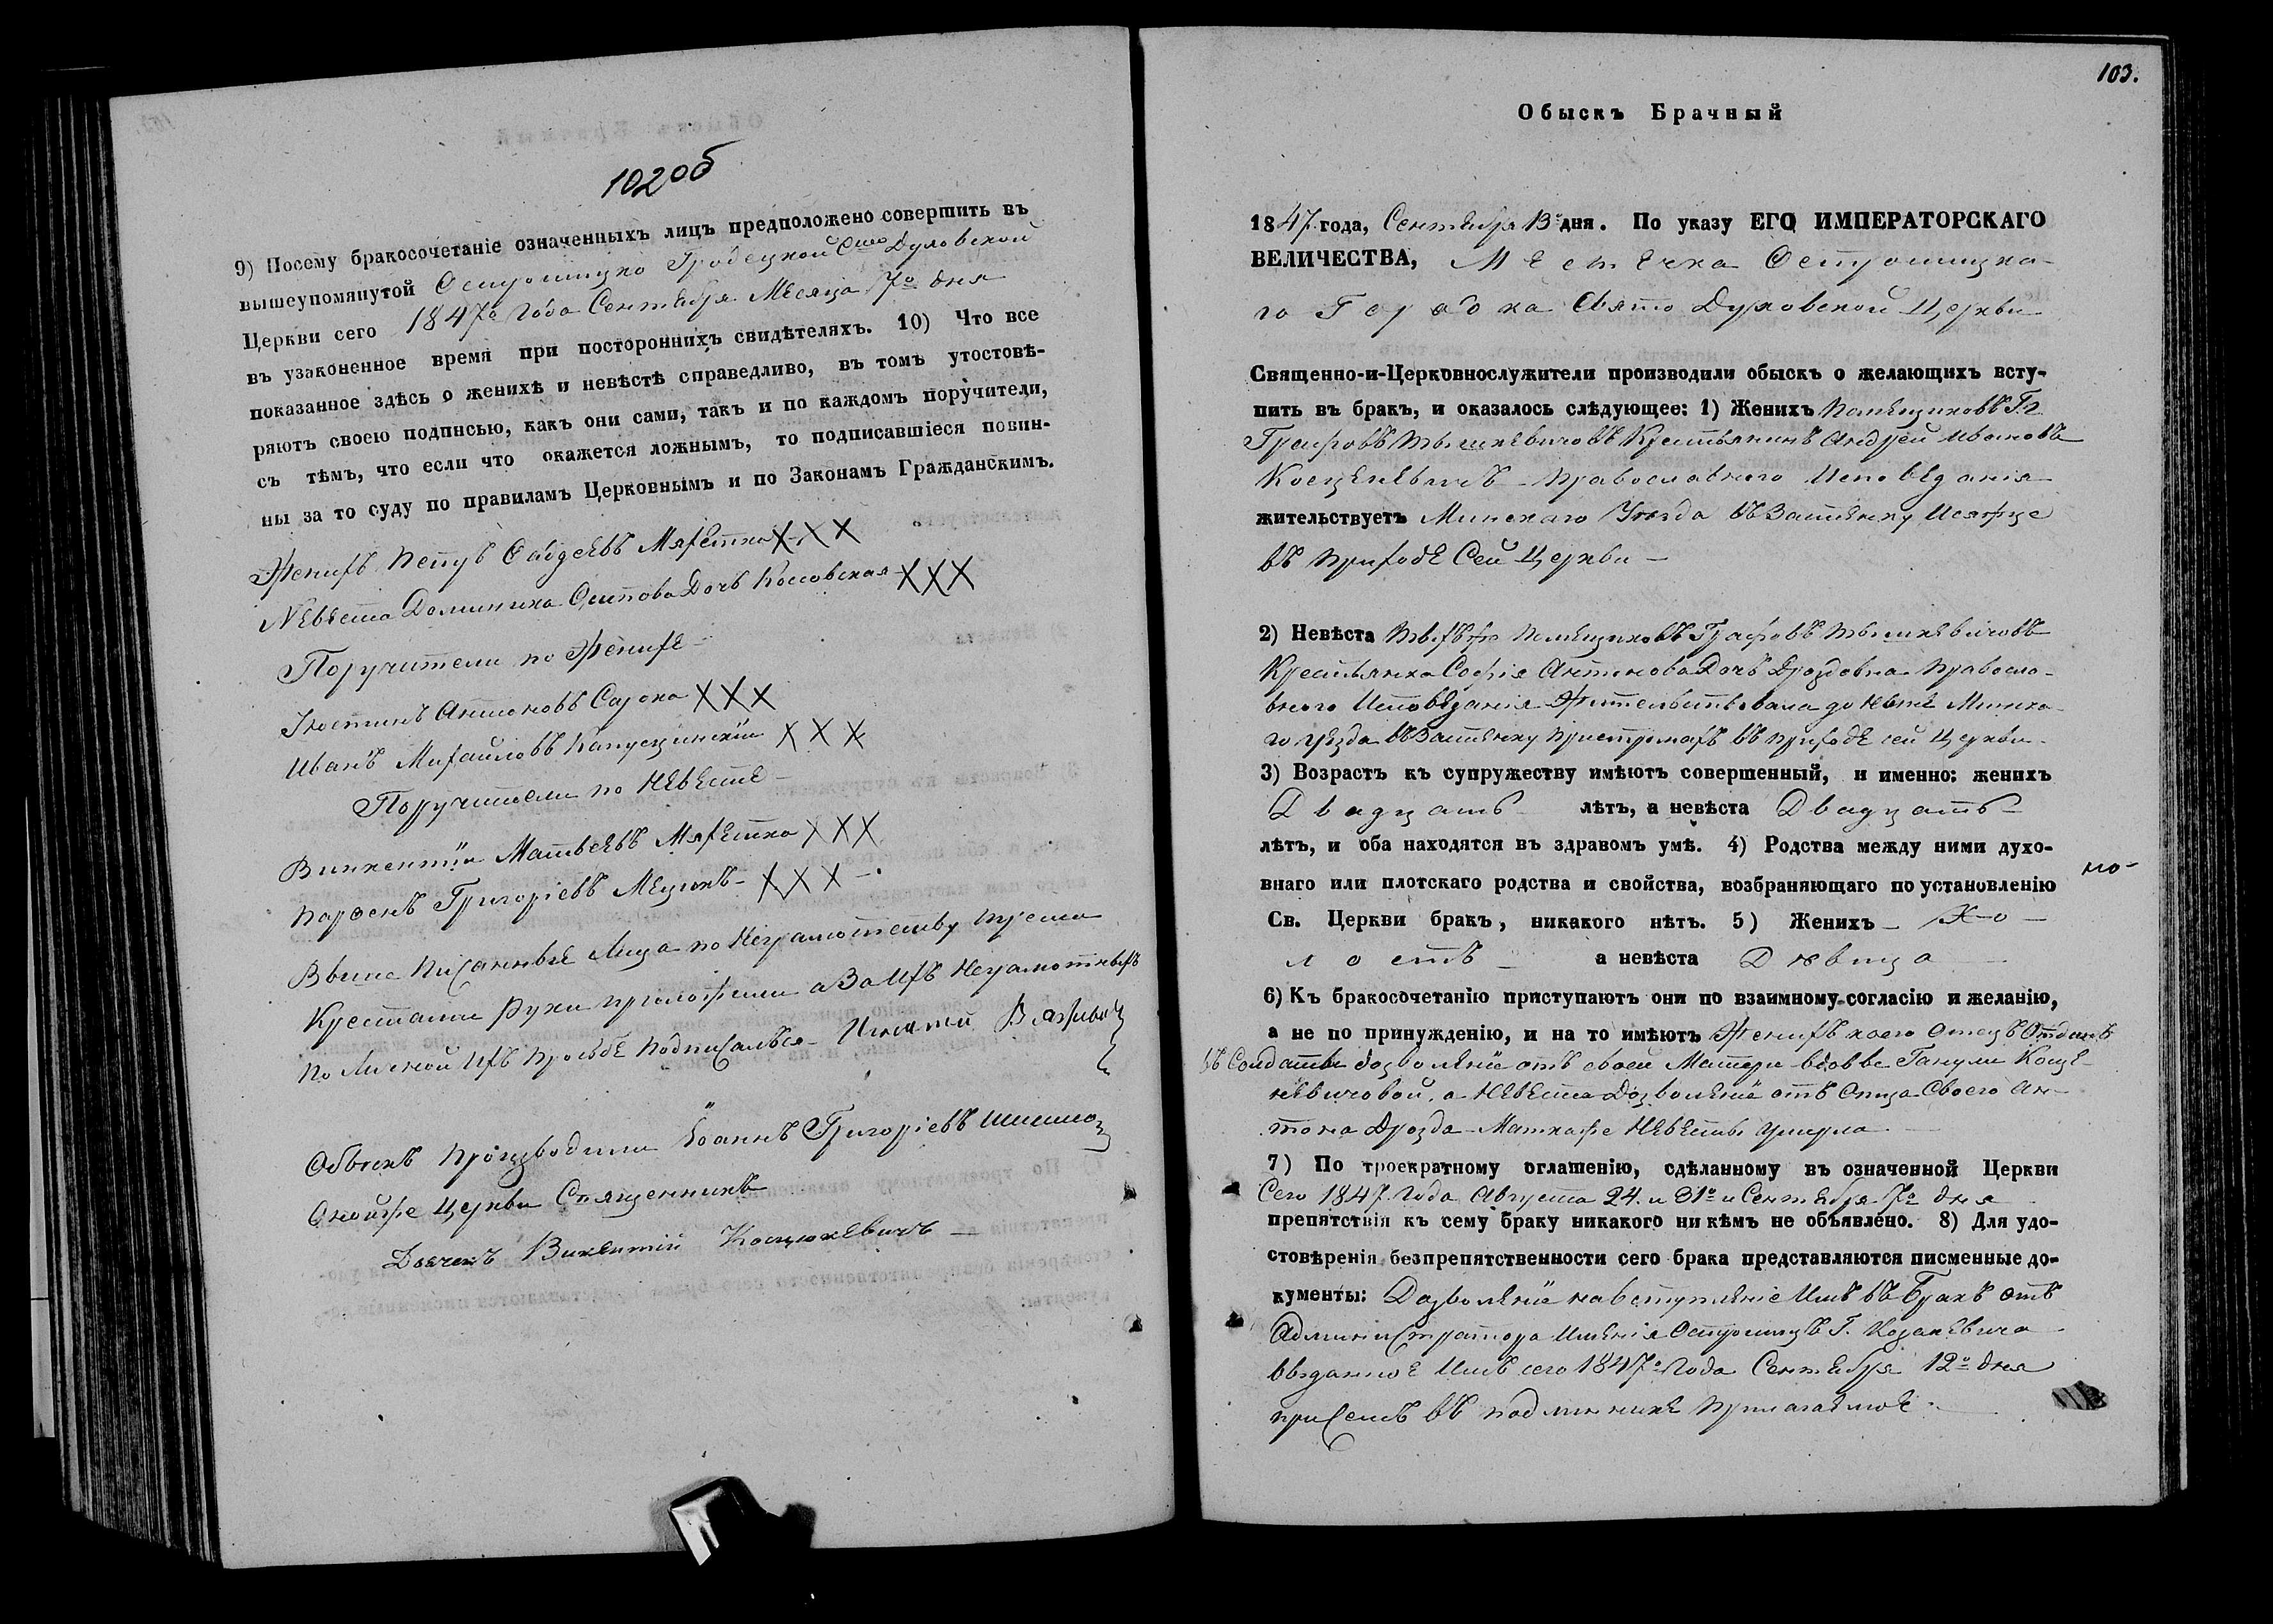 102 об
9) Посему бракосочетаніе означенныхъ лицъ предположено совершить въ
вышеупомянутой Остро Гродецкой Духовской
Церкви сего 1847го Года Сентября Месяца 7го дня
въ узаконенное время при постороннихъ свидѣтеляхъ. 10) Что все
показанное здѣсь о женихѣ и невѣстѣ справедливо, въ томъ утостовѣ-
ряютъ своею подписью, какъ они сами, такъ и по каждомъ поручители,
съ тѣмъ, что если что окажется ложнымъ, то подписавшіеся повин-
ны за то суду по правиламъ Церковнымъ и по Законамъ Гражданскимъ.
Женихъ Петръ Мяхетка XXX
Невеста Доминика Осипова Дочь Косовская XXX
Поручители по Женихе
Іюстинъ Антоновъ Сарока XXX
Иванъ Михайловъ Капусцинскій XXX
Поручители по Невесте
Винкентій Матвеевъ Мяхетка XXX
Григоріевъ XXX
Выше Писанные Лица по Неграмотству треми
Крестами Руки приложили а За ихъ Неграмотныхъ
по Личной ихъ прозьбе подписался Игнатій
Обыскъ производили Іоаннъ Григоріевъ
Оной же Церкви Священникъ
Дьячекъ Викентій Косцюкевичъ
103.
Обыскъ Брачный
1847 года, Сентября 13о дня. По указу ЕГО ИМПЕРАТОРСКАГО
ВЕЛИЧЕСТВА, Местечка Острошицка-
го Городка Свято Духовской Церкви
Священно-и-Церковнослужители производили обыскъ о желающихъ всту-
пить въ бракъ, и оказалось слѣдующее: 1) Женихъ Помещиковъ Г.г.
Графовъ Тышкевичовъ Крестьянинъ Андрей Ивановъ
Косценевичъ Православного Исповеданія
жительствуетъ Минскаго Уезда въ Застенку
въ приходе Сей Церкви
2) Невѣста Техъже Помещиковъ Графовъ Тышкевичовъ
Крестьянка Софія Антонова Дочь Дроздовна Правосла-
вного Исповеданія Жительствовала до ныне Минска-
го уезда въ Застенку въ приходе сей Церкви
3) Возрастъ къ супружеству имѣютъ совершенный, и именно: женихъ
Двадцать лѣтъ, а невѣста Двадцать
лѣтъ, и оба находятся въ здравомъ умѣ. 4) Родства между ними духо-
внаго или плотскаго родства и свойства, возбраняющаго по установленію
Св. Церкви бракъ, никакого нѣтъ. 5) Женихъ Хо-
лостъ а невѣста Девица
6) Къ бракосочетанію приступаютъ они по взаимному согласію и желанію,
а не по принужденію, и на то имѣютъ Женихъ коего Отецъ Отданъ
въ Солдаты дозволеніе отъ своей Матери вдовве Ганули Косце-
невичовой, а Невеста Дозволеніе отъ Отца Своего Ан-
тона Дрозда Матка же Невесты умерла
7) По троекратному оглашенію, сдѣланному въ означенной Церкви
Сего 1847 Года Августа 24. и 31о и Сентября 7о дня
препятствія къ сему браку никакого ни кѣмъ не объявлено. 8) Для удо-
стовѣренія безпрепятственности сего брака представляются писменные до-
кументы: Дозволеніе на вступленіе Имъ въ Бракъ отъ
Администратора Именія Острошицъ Г.
выданное Имъ сего 1847о Года Сентября 12о дня
при семъ въ подлиннике прилагаемое